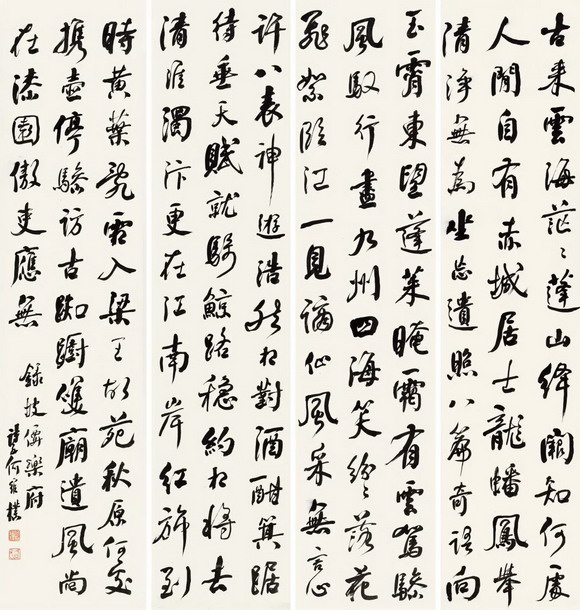 古来雲海茫〻蓬山絳闕知何處
人間自有赤城居士龍蟠鳳舉
清淨無為坐忘遺照八篇奇語向
玉霄東望蓬萊晻靄有雲駕驂
風馭行盡九州四海笑紛〻落花
飛絮臨江一見謫仙風采無言心
許八表神遊浩然相對酒酣箕踞
待垂天賦就騎鯨路穩約相將去
清淮濁汴更在江南岸紅旆到
時黃葉亂霜入梁王故苑秋原何處
攜壺停驂訪古踟躕雙廟遺風尚
在漆園傲吏應無
錄坡僊樂府
詩孫何維樸